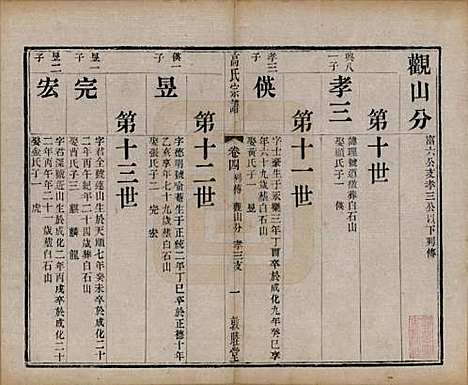 觀山分
富六公支孝三公以下列傳
第十世
興八
一子
孝三
葬白石山
娶顧氏子 俠
第十一世
孝三
子
俠
字士豪生于永樂三年丁酉卒於成化九年癸巳享
年六十九歲葬白石山
娶黃氏子 昱
高氏宗譜
卷四 列傳 觀山分 孝三支 一
敦睦堂
第十二世
俠一
子
昱
字德明號瑜菴生于正統二年丁巳卒於正德十年
乙亥享年七十九歲葬白石山
娶張氏子二 完 宏
第十三世
昱二
子
完
字君全號蓮山生於天順七年癸未卒於成化二十
二年丙午享年二十四歲葬白石山
娶酉氏子三 麒 麟 龍
宏
字君深號蓬山生於成化二年丙戌卒於成化二十
二年丙午享年二十一歲葬白石山
娶金氏子一 虎